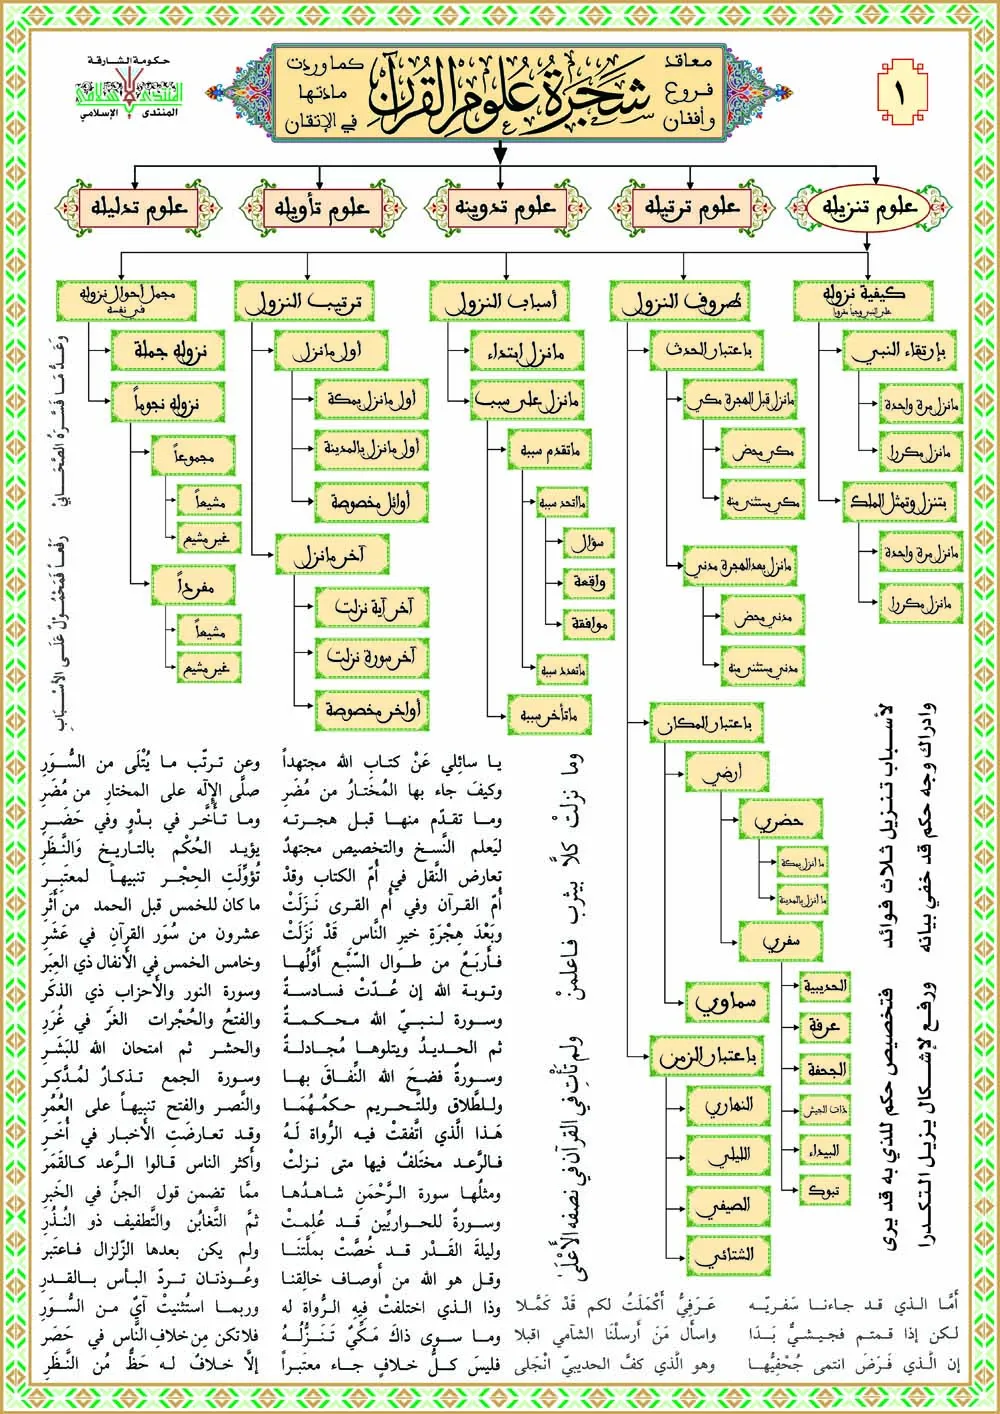 ١
معاقد
فروع
وأفنان
شجرة علوم القرآن
كما وردت
مادتها
في الإتقان
حكومة الشارقة
المنتدى الإسلامي
علوم تنزيله
علوم ترتيله
علوم تدوينه
علوم تأويله
علوم تدليله
كيفية نزوله
ظروف النزول
أسباب النزول
ترتيب النزول
مجمل أحوال نزوله
في نفسه
بإرتقاء النبي
مانزل مرة واحدة
مانزل مكررا
بتنزل وتمثل الملك
مانزل مرة واحدة
مانزل مكررا
باعتبار الحدث
مانزل قبل الهجرة مكي
مكي محض
مكي مستثنى منه
مانزل بعد الهجرة مدني
مدني محض
مدني مستثنى منه
باعتبار المكان
أرضي
حضري
ما أنزل بمكة
ما أنزل بالمدينة
سفري
الحديبية
عرفة
الجحفة
ذات الجيش
البيداء
تبوك
سماوي
باعتبار الزمن
النهاري
الليلي
الصيفي
الشتائي
مانزل ابتداء
مانزل على سبب
ماتقدم سببه
مااتحد سببه
سؤال
واقعة
موافقة
ماتعدد سببه
ماتأخر سببه
أول مانزل
أول مانزل بمكة
أول مانزل بالمدينة
أوائل مخصوصة
آخر مانزل
آخر آية نزلت
آخر سورة نزلت
أواخر مخصوصة
نزوله جملة
نزوله نجوماً
مجموعاً
مشيعاً
غير مشيع
مفرداً
مشيعاً
غير مشيع
وَعَدُّ مَا فَسَّرَهُ الصَّحَابِيْ
رَفْعاً فَمَحْمُولٌ عَلَى الأَسْبَابِ
لأسباب تنزيل ثلاث فوائد
فتخصيص حكم للذي به قد يرى
وادراك وجه حكم قد خفي بيانه
ورفع لإشكال يزيل التكدرا
وما نزلتْ كلاَّ بيثرب فاعلمنْ
ولم تأتِ في القرآن في نصفه الأَعْلَى
يا سائِلي عَنْ كتابِ الله مجتهداً وعن ترتّب ما يُتْلَى من السُّوَرِ
وكيفَ جاء بها المُخْتارُ من مُضَرِ صلَّى الإِلَه على المختارِ من مُضَرِ
وما تقدّم منها قبل هجرته وما تأخَّر في بدْوٍ وفي حَضَرِ
ليَعلم النَّسخ والتخصيص مجتهدٌ يؤيد الحُكْم بالتاريخ وَالنَّظَرِ
تعارض النَّقل في أمّ الكتاب وقدْ تُؤوِّلَتِ الحِجْر تنبيهاً لمعتبِرِ
أمّ القرآن وفي أم القرى نَزَلَتْ ما كان للخمس قبل الحمد من أَثَرِ
وبَعْدَ هِجْرَةِ خيرِ النَّاس قَدْ نَزَلَتْ عشرون من سُوَر القرآنِ في عَشَرِ
فأربَعٌ من طوال السَّبْع أَوَّلُها وخامس الخمس في الأنفال ذي العِبَر
وتوبة الله إن عُدّتْ فسادسةٌ وسورة النور والأحزاب ذي الذكَر
وسورة لنبيّ الله محكمةٌ والفتحُ والحُجْرات الغرّ في غُرَرِ
ثم الحديدُ ويتلوها مُجادلةٌ والحشر ثم امتحان الله للبَشَرِ
وسورةٌ فضحَ اللهُ النِّفاقَ بها وسورة الجمع تذكارٌ لمُدَّكِر
وللطَّلاق وللتَّحريم حكمُهُمَا والنَّصر والفتح تنبيهاً على العُمُرِ
هَذا الَّذي اتَّفقتْ فيه الرُّواة لَهُ وقد تعارضَتِ الأخبار في أُخَرِ
فالرَّعد مختَلفٌ فيها متى نزلتْ وأكثر الناس قالوا الرَّعد كالقَمَر
ومثلُها سورة الرَّحْمَنِ شاهدُها ممَّا تضمن قول الجنِّ في الخَبرِ
وسورةٌ للحواريِّين قد عُلِمتْ ثمَّ التَّغابُن والتَّطفيف ذو النُذُرِ
وليلةَ القَدْر قد خُصَّتْ بملَّتنَا ولم يكن بعدها الزّلزال فـاعتَبر
وقل هو الله من أوصاف خالِقنا وعُوذتان تردّ البأس بالقدرِ
وذا الذي اختلفتْ فيهِ الرُّواة له وربما استُثنيتْ آيٌ من السُّوَرِ
وما سوى ذاكَ مَكّيٌّ تَنَزُّلُهُ فلا تكن مِن خلافِ النَّاس في حَصَر
فليسَ كلُّ خلافٍ جاء معتبَراً إلَّا خلافٌ له حَظٌّ مُن النَّظَرِ
أمَّا الذي قد جاءنا سَفريّه عَرَفِيُّ أَكْمَلَتُ لكم قَدْ كَمَّلا
لكن إذا قمتم فجيشيٌّ بَدَا واسأل مَنَ أَرسلْنَا الشآمي اقبلا
إن الَّذي فَرَضَ انتمى جُحْفِيُّها وهو الَّذي كفَّ الحديبيّ انْجَلى